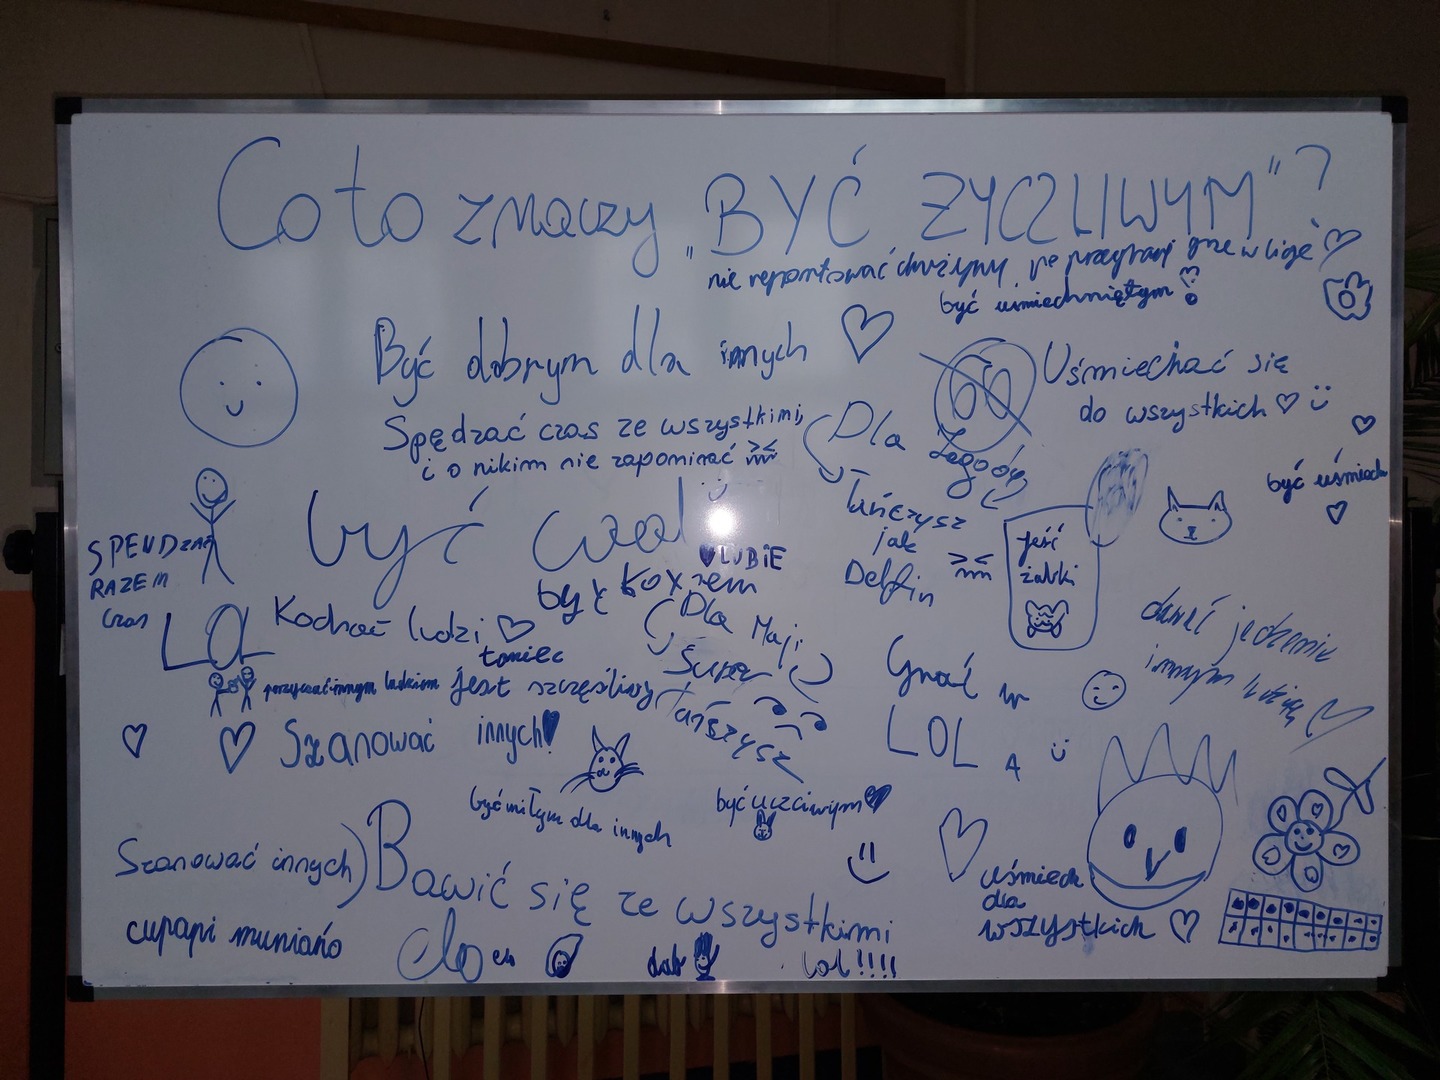 Co to znaczy „BYĆ ŻYCZLIWYM"?
nie reportować drużyny po przegranej grze w ligę
być uśmiechniętym
Być dobrym dla innych
Uśmiechać się
do wszystkich
Spędzać czas ze wszystkimi
i o nikim nie zapominać
Dla Jagody
Tańczysz
jak
Delfin
być uśmiech
jeść
żabki
SPENDZAĆ
RAZEM
czas
być cool
LUBIE
być koxem
LOL
Kochać ludzi
taniec
jest szczęśliwy
Dla Maji
Super
Tańszysz
Grać w
LOL A
dawać jedzenie
innym
Szanować innych
być miłym dla innych
być uczciwym
Szanować innych
Bawić się ze wszystkimi
uśmiech
dla
wszystkich
cupapi muniańo
elo elo
dab
lol!!!!